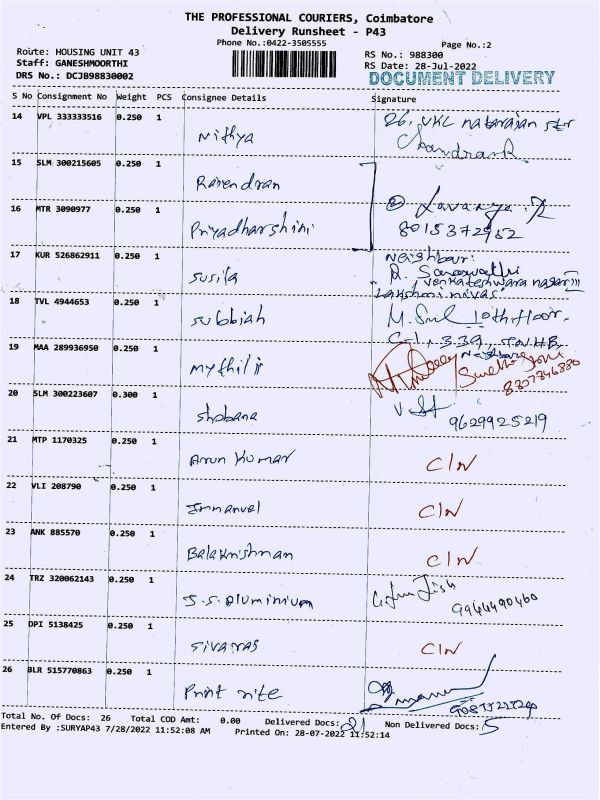 THE PROFESSIONAL COURIERS, Coimbatore
Delivery Runsheet - P43
Phone No.:0422-3505555
Page No.:2
Route: HOUSING UNIT 43
Staff: GANESHMOORTHI
DRS No.: DCJB98830002
RS No.: 988300
RS Date: 28-Jul-2022
DOCUMENT DELIVERY
S No Consignment No Weight PCS Consignee Details Signature
14 VPL 333333516 0.250 1 Nithya 26, VKL natarajan str
Chandran R
15 SLM 300215605 0.250 1 Ravendran
16 MTR 3090977 0.250 1 Priyadharshini Lavanya
8015372952
17 KUR 526862911 0.250 1 Susila Neighbour:
R. Saraswathi
venkateshwara nagar III
Lakshmi nivas
18 TVL 4944653 0.250 1 Subbiah 10th floor
C-1, 339, T.N.H.B,
19 MAA 289936950 0.250 1 Mythili Neighbour
8807846880
20 SLM 300223607 0.300 1 Shobana 9629925219
21 MTP 1170325 0.250 1 Arun Kumar C/N
22 VLI 208790 0.250 1 Immanvel C/N
23 ANK 885570 0.250 1 Balakrishman C/N
24 TRZ 320062143 0.250 1 S.S. Aluminium 9944490460
25 DPI 5138425 0.250 1 Sivaraj C/N
26 BLR 515770863 0.250 1 Print rite
Total No. Of Docs: 26 Total COD Amt: 0.00 Delivered Docs: 21 Non Delivered Docs: 5
Entered By :SURYAP43 7/28/2022 11:52:08 AM Printed On: 28-07-2022 11:52:14